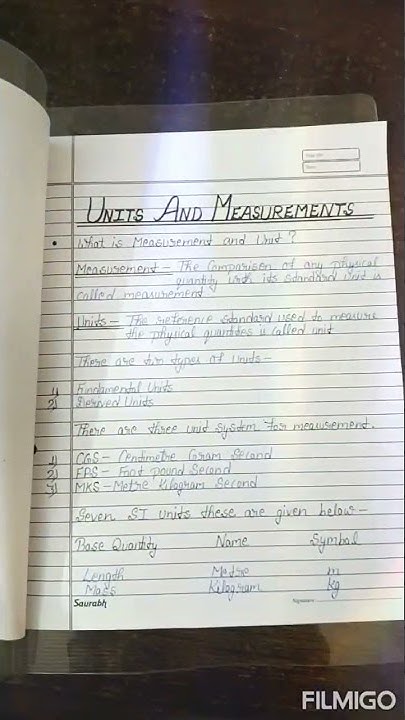 UNITS AND MEASUREMENTS
What is Measurement and Unit?
Measurement - The Comparison of any physical
quantity with its standard unit is
called measurement
Units - The reference standard used to measure
the physical quantities is called unit
There are two types of Units -
1) Fundamental Units
2) Derived Units
There are three unit system for measurement.
1) CGS - Centimetre Gram Second
2) FPS - Foot Pound Second
3) MKS - Metre Kilogram Second
Seven SI units these are given below -
Base Quantity Name Symbol
Length Metre m
Mass Kilogram kg
Saurabh
FILMIGO